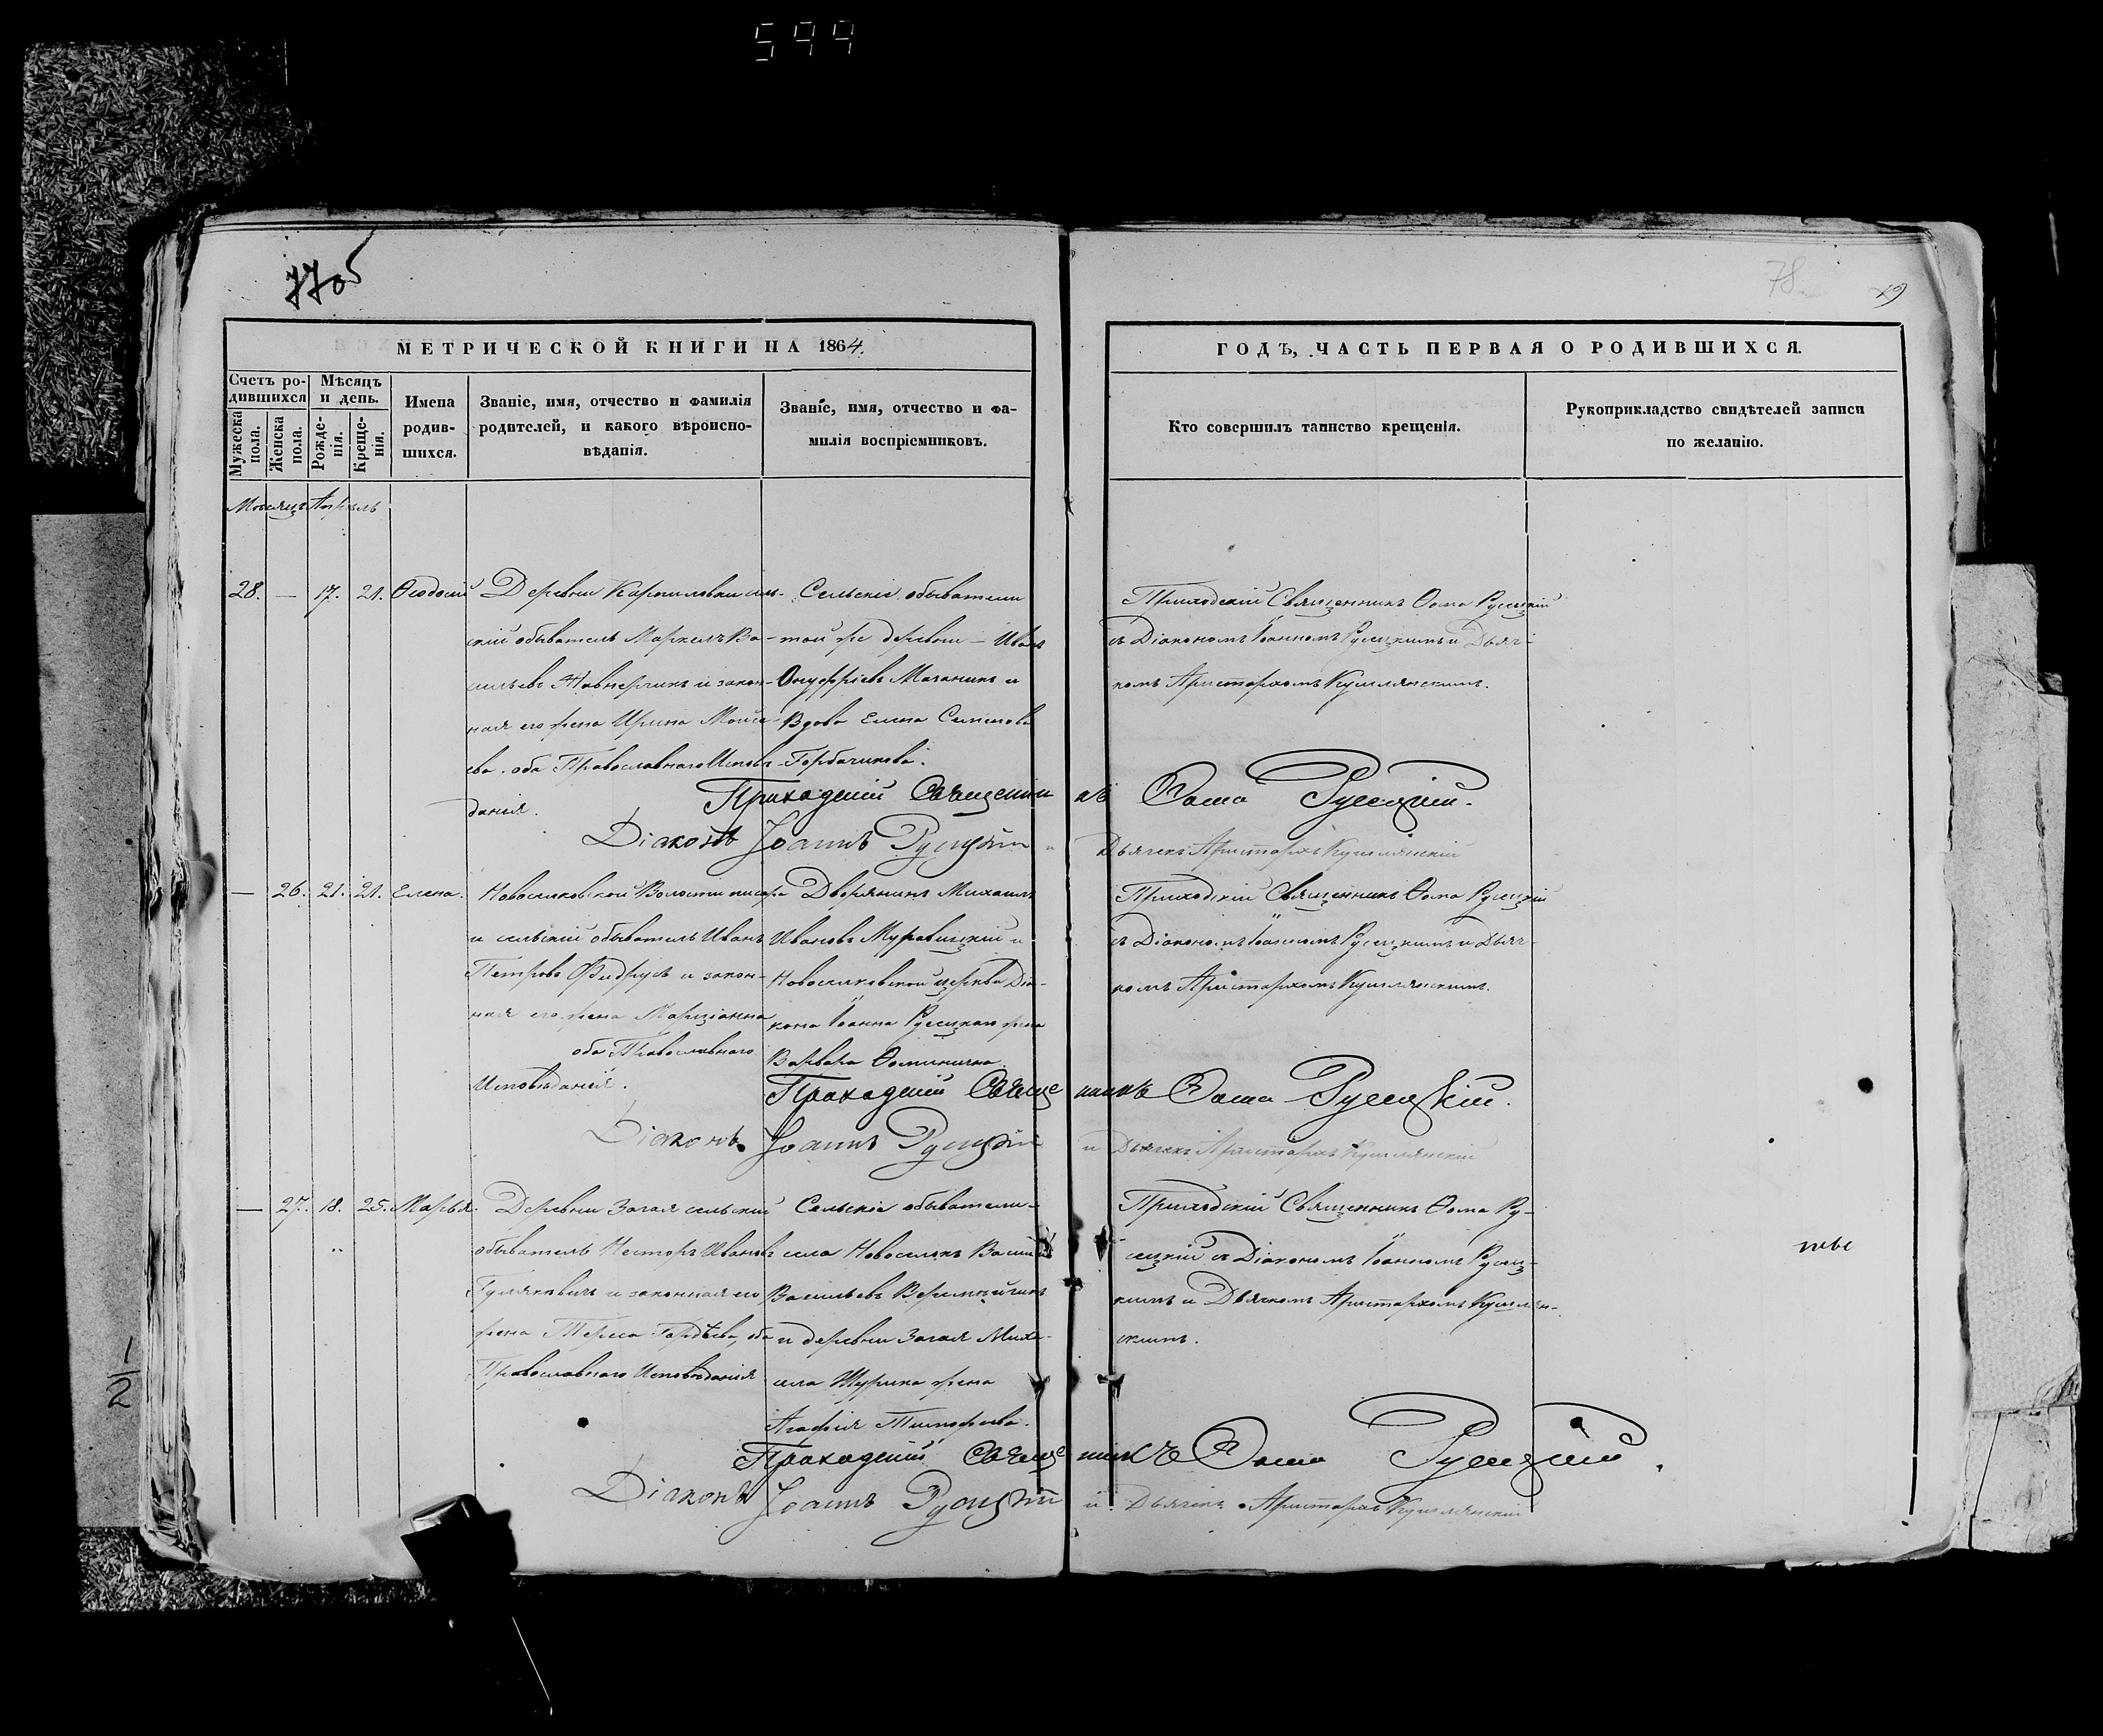 599
77 об
78
79
МЕТРИЧЕСКОЙ КНИГИ НА 1864.
ГОДЪ, ЧАСТЬ ПЕРВАЯ О РОДИВШИХСЯ.
Счетъ родившихся
Мужеска пола.
Женска пола.
Мѣсяцъ и день.
Рожденія.
Крещенія.
Имена родившихся.
Званіе, имя, отчество и фамилія родителей, и какого вѣроисповѣданія.
Званіе, имя, отчество и фамилія воспріемниковъ.
Кто совершилъ таинство крещенія.
Рукоприкладство свидѣтелей записи по желанію.
Мѣсяцъ Апрѣль
28. — 17. 21. Ѳеодосій
Деревни Карпиловки сель-
скій обыватель Маркелъ Ва-
сильевъ и закон-
ная его жена Ирина Моисе-
ева. оба Православнаго Исповѣ-
данія.
Сельскіе обыватели
той же деревни — Иванъ
Онуфріевъ и
Вдова Елена Семенова
Горбачикова.
Приходскій Священникъ Ѳома Русецкій
съ Діакономъ Іоанномъ Русецкимъ и Дьяч-
комъ Аристархомъ Кушлянскимъ.
Приходскій Священникъ Ѳома Русецкій.
Діаконъ Іоаннъ Русецкій и Дьячекъ Аристархъ Кушлянскій
— 26. 21. 21. Елена.
Новоселковской Волости писарь
и сельскій обыватель Иванъ
Петровъ и закон-
ная его жена Марціанна
оба Православнаго
Исповѣданія.
Дворянинъ Михаилъ
Ивановъ Муравицкій и
Новоселковской церкви Діа-
кона Іоанна Русецкаго жена
Варвара Ѳоминична
Приходскій Священникъ Ѳома Русецкій
съ Діакономъ Іоанномъ Русецкимъ и Дьяч-
комъ Аристархомъ Кушлянскимъ.
Приходскій Священникъ Ѳома Русецкій.
Діаконъ Іоаннъ Русецкій и Дьячекъ Аристархъ Кушлянскій
— 27. 18. 25. Марья.
Деревни Загая сельскій
обыватель Несторъ Ивановъ
Гуляковичъ и законная его
жена Гордѣева, оба
Православнаго Исповѣданія
Сельскіе обыватели
села Новоселокъ Василій
Васильевъ
и деревни Загая Миха-
ила жена
Агафія Тимофеева.
Приходскій Священникъ Ѳома Ру-
сецкій съ Діакономъ Іоанномъ Русец-
кимъ и Дьячкомъ Аристархомъ Кушлян-
скимъ.
Приходскій Священникъ Ѳома Русецкій.
Діаконъ Іоаннъ Русецкій и Дьячекъ Аристархъ Кушлянскій
1/2